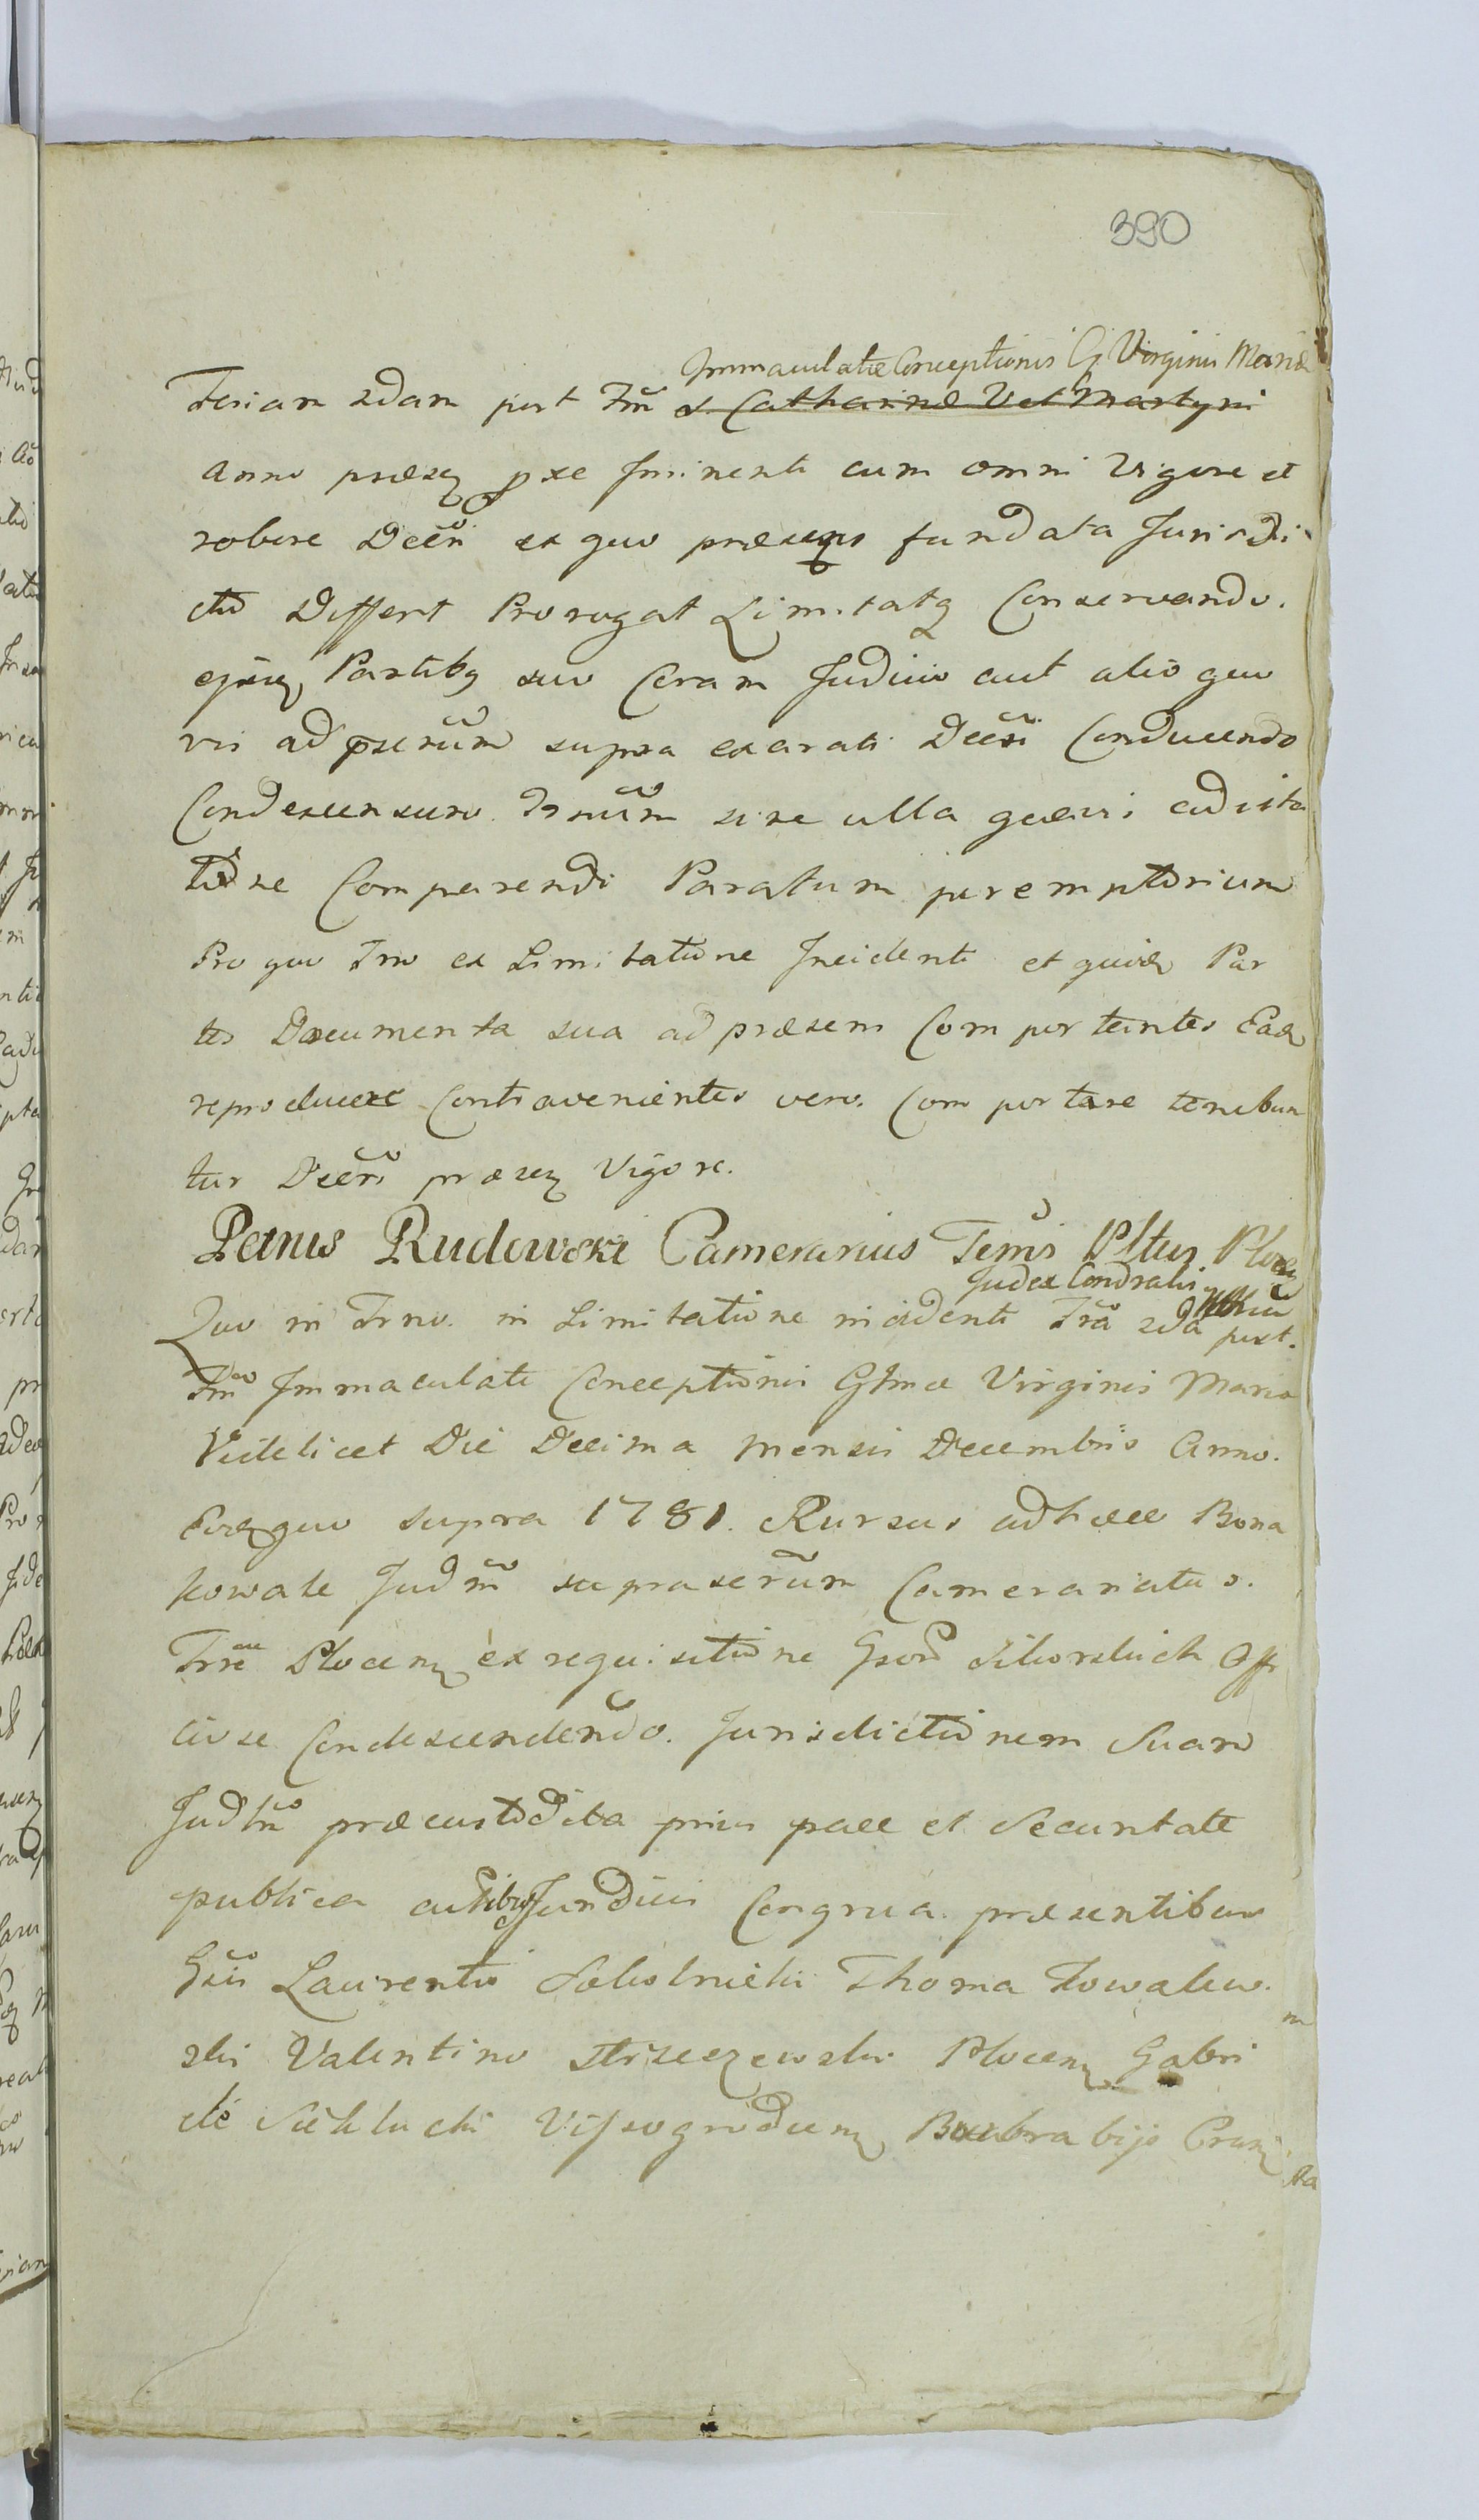 390
Immaculatæ Conceptionis G Virginis Mariæ
Feriam 2dam post Fm̃ S. Catharinæ V et Martyris
Anno præseñ pxe Iminenti cum omni Vigore et
robore Decr̃i ex quo præsens fundata Jurisdi
ctio Differt Prorogat Limitatq Conservando.
ejusq Partibq suo Coram Judicio aut alio quo
vis ad pserũm supra exarati Decr̃i Conducendo
Condescensuro Trnũm sine ulla quavi adcita
tione Comparendi Paratum peremptorium
Pro quo Trno ex Limitatione Incidenti et quidẽ Par
tes Documenta sua ad præsens Comportantes Eadẽ
reproducere Contravenientes vero. Comportare tenebun
tur Decr̃i præseñ Vigore.
Petrus Rudowski Camerarius Ter̃ris Pltus Ploceñ
Judex Condralis
Quo in Trno. in Limitatione incidenti Fr̃a 2da post.
Fm̃ Immaculati Conceptionis Gsmæ Virginis Maria
Videlicet Die Decima Mensis Decembris Anno.
Eoq quo supra 1781. Rursus ad hæcce Bona
Kowale Judm̃ suprascrũm Camerariatus.
Trr̃æ Ploceñ ex requisitione Gsor̃ Sikorskich Offi
ciose Condescendendo. Jurisdictionem Suam
Judtr̃ præcustodita prius pace et Securitate
publica actibusq Juridicis Congrua. præsentibus
Gsis̃ Laurentio Sokolnicki Thoma Kowalew.
ski Valentino Strzeszewski Ploceñ Gabri
ele Sichlucki Vissogrodieñ